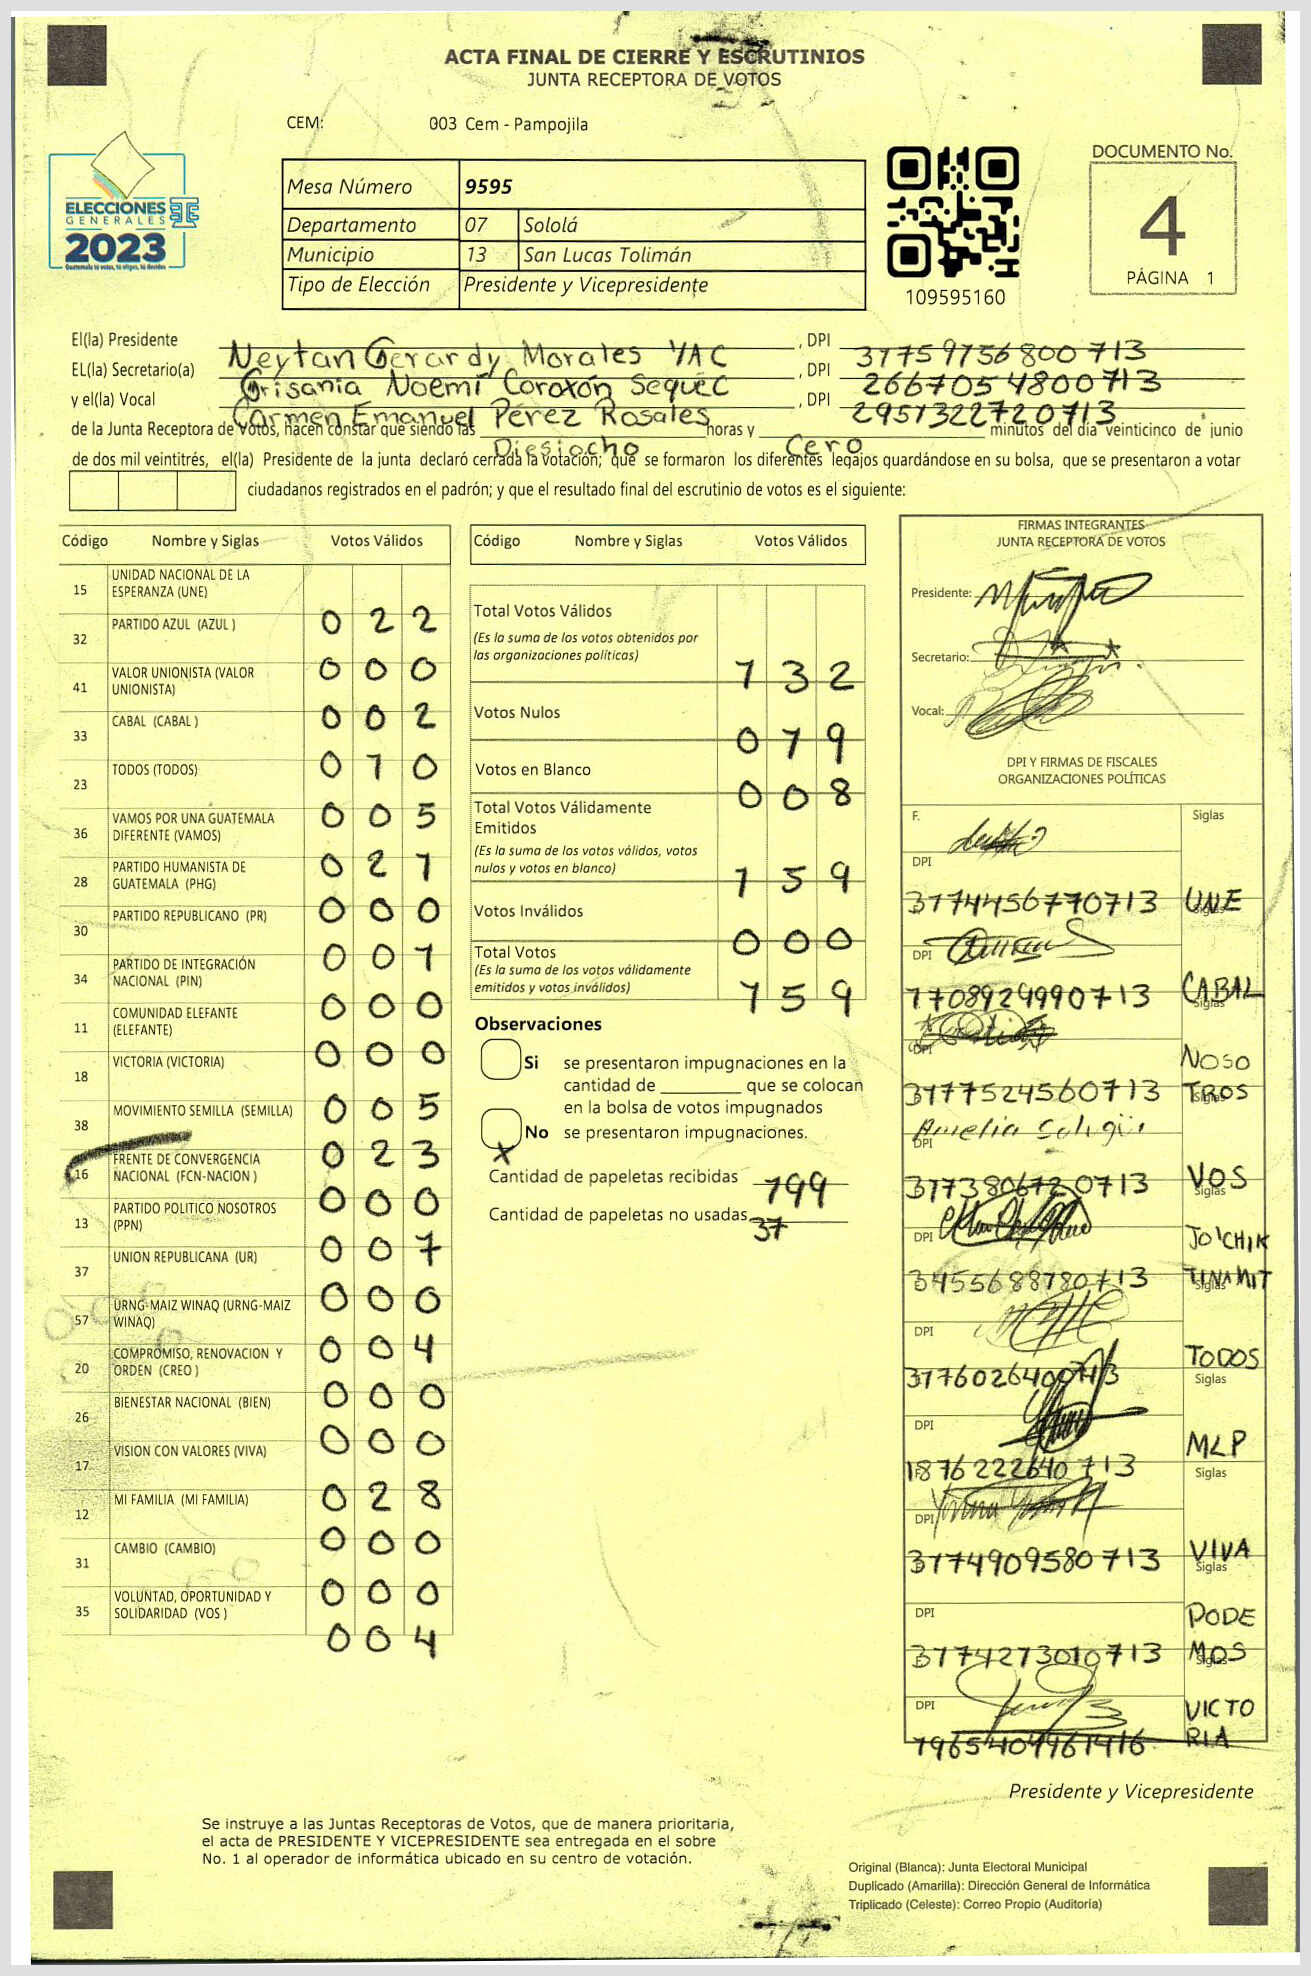 ACTA FINAL DE CIERRE Y ESCRUTINIOS
JUNTA RECEPTORA DE VOTOS
CEM: 003 Cem - Pampojila
ELECCIONES
GENERALES
2023
Guatemala tú votas, tú eliges, tú decides
Mesa Número 9595
Departamento 07 Sololá
Municipio 13 San Lucas Tolimán
Tipo de Elección Presidente y Vicepresidente
109595160
DOCUMENTO No.
4
PÁGINA 1
El(la) Presidente Neytan Gerardy Morales YAC , DPI 37759756800713
EL(la) Secretario(a) Grisania Noemí Coroxón Sequéc , DPI 2667054800713
y el(la) Vocal Carmen Emanuel Pérez Rosales , DPI 2951322720713
de la Junta Receptora de Votos, hacen constar que siendo las Diesiocho horas y Cero minutos del día veinticinco de junio
de dos mil veintitrés, el(la) Presidente de la junta declaró cerrada la votación; que se formaron los diferentes legajos quardándose en su bolsa, que se presentaron a votar
ciudadanos registrados en el padrón; y que el resultado final del escrutinio de votos es el siguiente:
Código Nombre y Siglas Votos Válidos
15 UNIDAD NACIONAL DE LA
ESPERANZA (UNE) 0 2 2
32 PARTIDO AZUL (AZUL ) 0 0 0
41 VALOR UNIONISTA (VALOR
UNIONISTA) 0 0 2
33 CABAL (CABAL ) 0 1 0
23 TODOS (TODOS) 0 0 5
36 VAMOS POR UNA GUATEMALA
DIFERENTE (VAMOS) 0 2 1
28 PARTIDO HUMANISTA DE
GUATEMALA (PHG) 0 0 0
30 PARTIDO REPUBLICANO (PR) 0 0 1
34 PARTIDO DE INTEGRACIÓN
NACIONAL (PIN) 0 0 0
11 COMUNIDAD ELEFANTE
(ELEFANTE) 0 0 0
18 VICTORIA (VICTORIA) 0 0 5
38 MOVIMIENTO SEMILLA (SEMILLA) 0 2 3
16 FRENTE DE CONVERGENCIA
NACIONAL (FCN-NACION ) 0 0 0
13 PARTIDO POLITICO NOSOTROS
(PPN) 0 0 7
37 UNION REPUBLICANA (UR) 0 0 0
57 URNG-MAIZ WINAQ (URNG-MAIZ
WINAQ) 0 0 4
20 COMPROMISO, RENOVACION Y
ORDEN (CREO ) 0 0 0
26 BIENESTAR NACIONAL (BIEN) 0 0 0
17 VISION CON VALORES (VIVA) 0 2 8
12 MI FAMILIA (MI FAMILIA) 0 0 0
31 CAMBIO (CAMBIO) 0 0 0
35 VOLUNTAD, OPORTUNIDAD Y
SOLIDARIDAD (VOS ) 0 0 4
Código Nombre y Siglas Votos Válidos
Total Votos Válidos
(Es la suma de los votos obtenidos por
las organizaciones políticas) 1 3 2
Votos Nulos 0 1 9
Votos en Blanco 0 0 8
Total Votos Válidamente
Emitidos
(Es la suma de los votos válidos, votos
nulos y votos en blanco) 1 5 9
Votos Inválidos 0 0 0
Total Votos
(Es la suma de los votos válidamente
emitidos y votos inválidos) 1 5 9
Observaciones
Si se presentaron impugnaciones en la
cantidad de ________ que se colocan
en la bolsa de votos impugnados
No se presentaron impugnaciones.
x
Cantidad de papeletas recibidas 199
Cantidad de papeletas no usadas 37
FIRMAS INTEGRANTES
JUNTA RECEPTORA DE VOTOS
Presidente:
Secretario:
Vocal:
DPI Y FIRMAS DE FISCALES
ORGANIZACIONES POLÍTICAS
F. Siglas
DPI 3174456770713 UNE
Siglas
DPI 1708929990713 CABAL
Siglas
DPI 3177524560713 NOSO
TROS
Siglas
Amelia
DPI 3773806720713 VOS
Siglas
DPI 3455688780713 JO'CHIK
TINAMIT
Siglas
DPI 3776026400713 TODOS
Siglas
DPI 1876222640713 MLP
Siglas
DPI 3774909580713 VIVA
Siglas
DPI 3774273010713 PODE
MOS
Siglas
DPI 1965404961416 VICTO
RIA
Presidente y Vicepresidente
Se instruye a las Juntas Receptoras de Votos, que de manera prioritaria,
el acta de PRESIDENTE Y VICEPRESIDENTE sea entregada en el sobre
No. 1 al operador de informática ubicado en su centro de votación.
Original (Blanca): Junta Electoral Municipal
Duplicado (Amarilla): Dirección General de Informática
Triplicado (Celeste): Correo Propio (Auditoría)